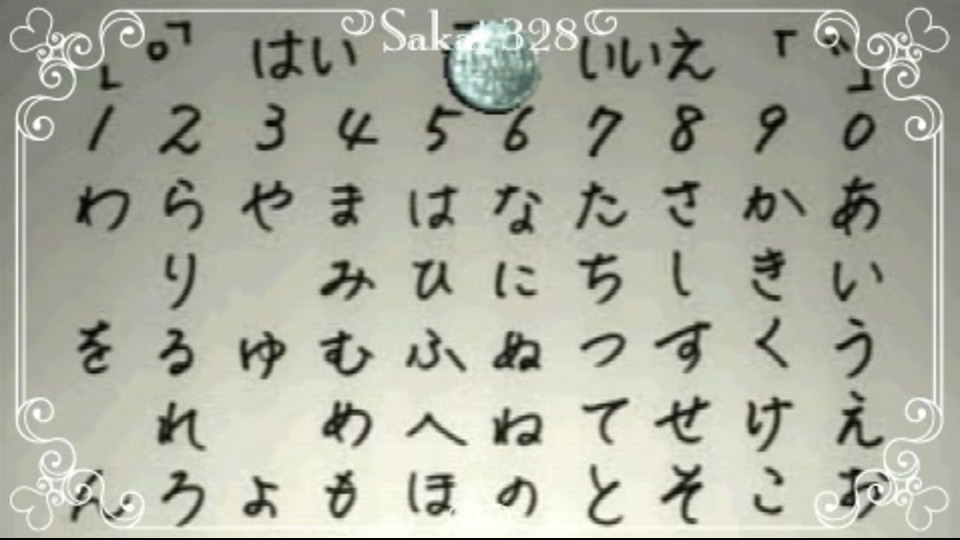 328
はい いいえ
1 2 3 4 5 6 7 8 9 0
わ ら や ま は な た さ か あ
り み ひ に ち し き い
を る ゆ む ふ ぬ つ す く う
れ め へ ね て せ け え
ん ろ よ も ほ の と そ こ お